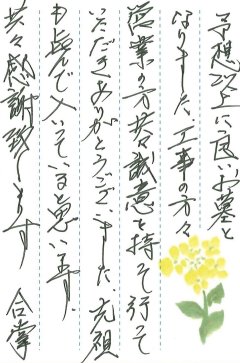 予想以上に良いお墓と
なりました、工事の方々
営業の方共々誠意を持って行って
いただきありがとうございました、先祖
も喜んで入っていると思います。
共々感謝致します 合掌